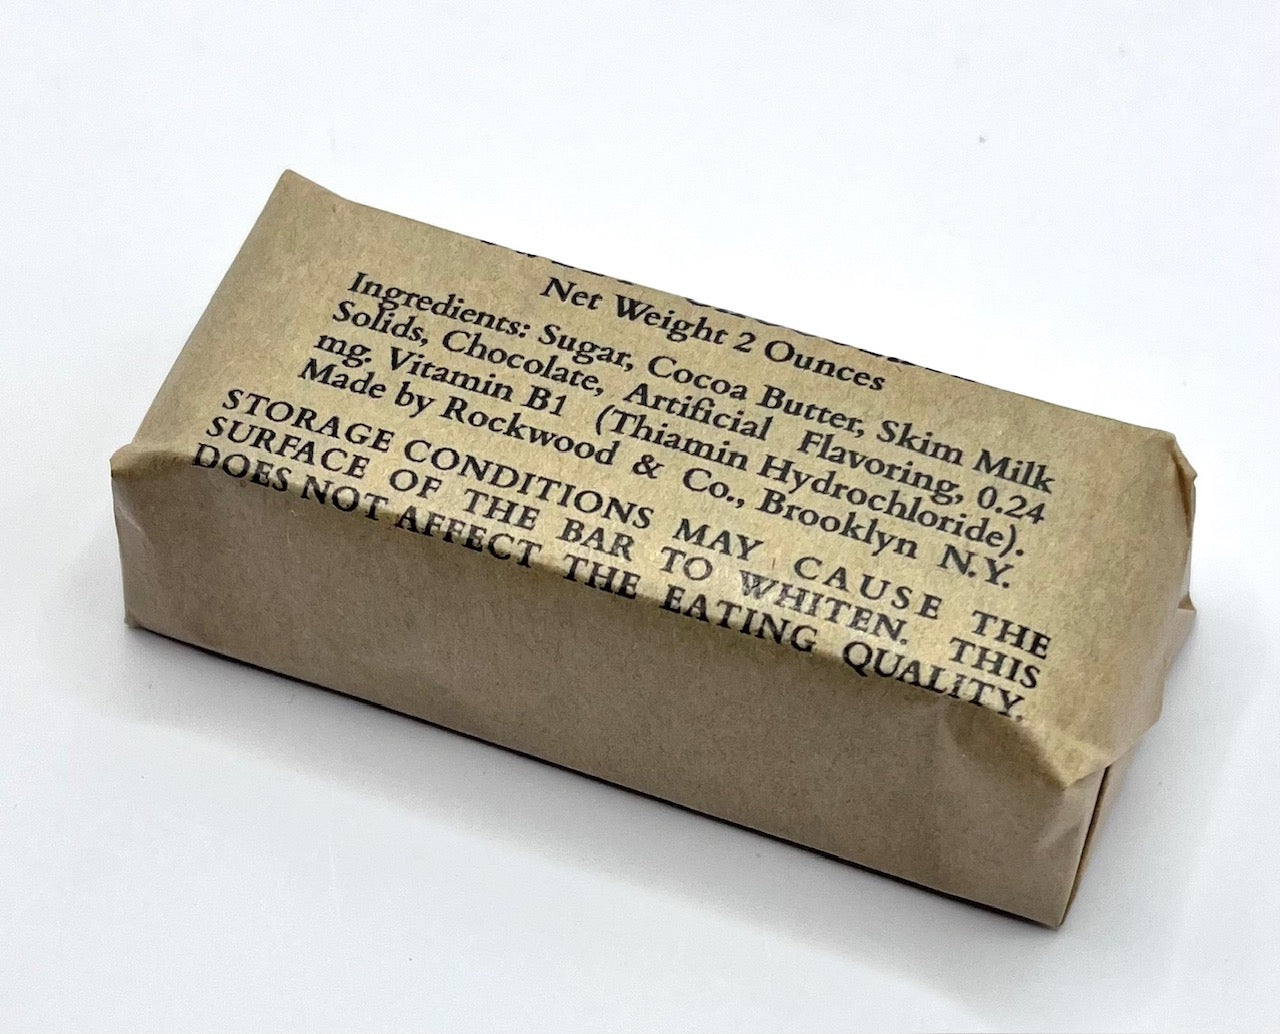 Net Weight 2 Ounces
Ingredients: Sugar, Cocoa Butter, Skim Milk
Solids, Chocolate, Artificial Flavoring, 0.24
mg. Vitamin B1 (Thiamin Hydrochloride).
Made by Rockwood & Co., Brooklyn N.Y.
STORAGE CONDITIONS MAY CAUSE THE
SURFACE OF THE BAR TO WHITEN. THIS
DOES NOT AFFECT THE EATING QUALITY.